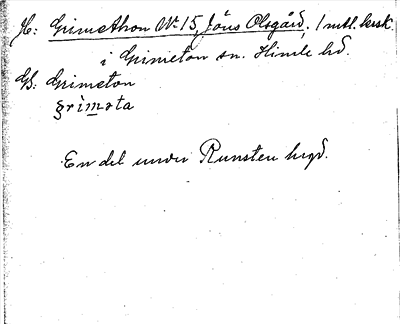 H: Grimethon No 15, Jöns Olsgård, 1 mtl. kersk.
i Grimeton sn. Himle hd.
GS: Grimeton
griməta
En del under Runsten lagd.